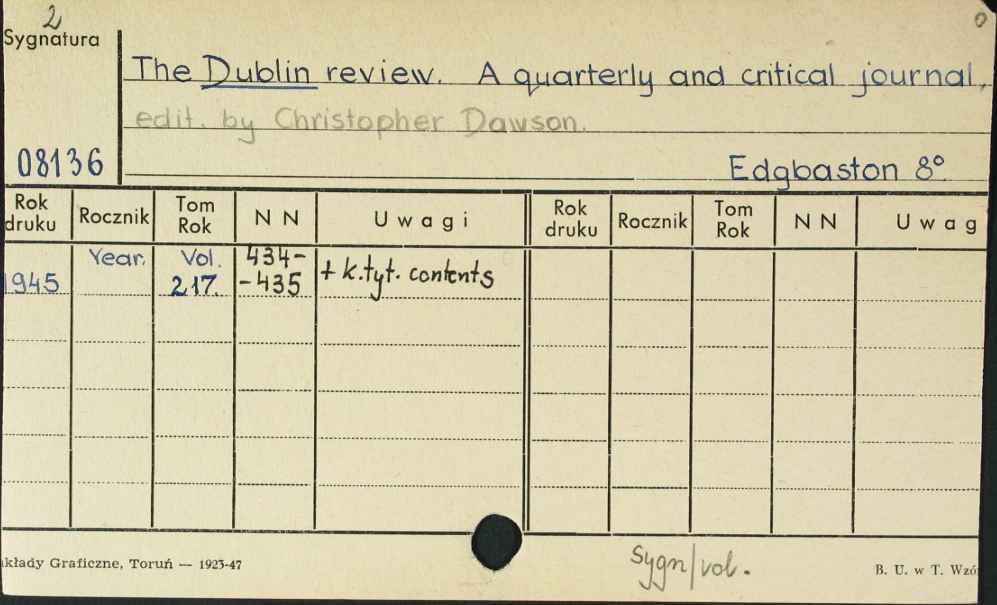 2
0
Sygnatura
The Dublin review. A quarterly and critical journal,
edit. by Christopher Dawson.
08136
Edgbaston 8°.
Rok druku Rocznik Tom Rok N N Uwagi Rok druku Rocznik Tom Rok N N Uwag
1945 Year. Vol. 217. 434--435 + k.tyt. contents
kłady Graficzne, Toruń — 1923-47
Sygn/vol.
B. U. w T. Wzór